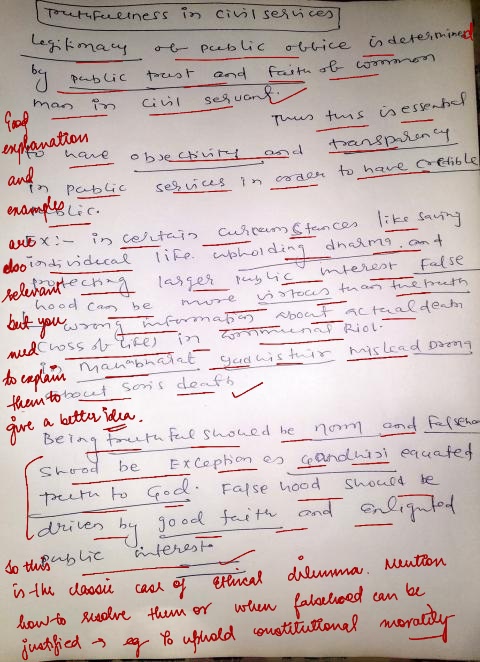 Truthfulness in civil services
Legitimacy of public office is determined
by public trust and faith of common
man in civil servant.
Thus this is essential
to have objectivity and transparency
in public services in order to have credible
public.
Good
explanation
and
examples
are
also
relevant
but you
need
to explain
them to
give a better idea.
Ex:- in certain curcumstances like saving
individual life. upholding dharma. and
protecting larger public interest false
hood can be more virtous than the truth
wrong information about actual death
(Loss of life) in communal Riot.
Mahabharat yudhisthir mislead Drona
about sons death
Being truthful should be norm and falsehood
shood be Exception as Gandhiji equated
truth to God. False hood should be
driven by good faith and Enligted
public interest.
So this
is the classic case of Ethical dilemma. Mention
how to resolve them or when falsehood can be
justified → eg To uphold constitutional morality